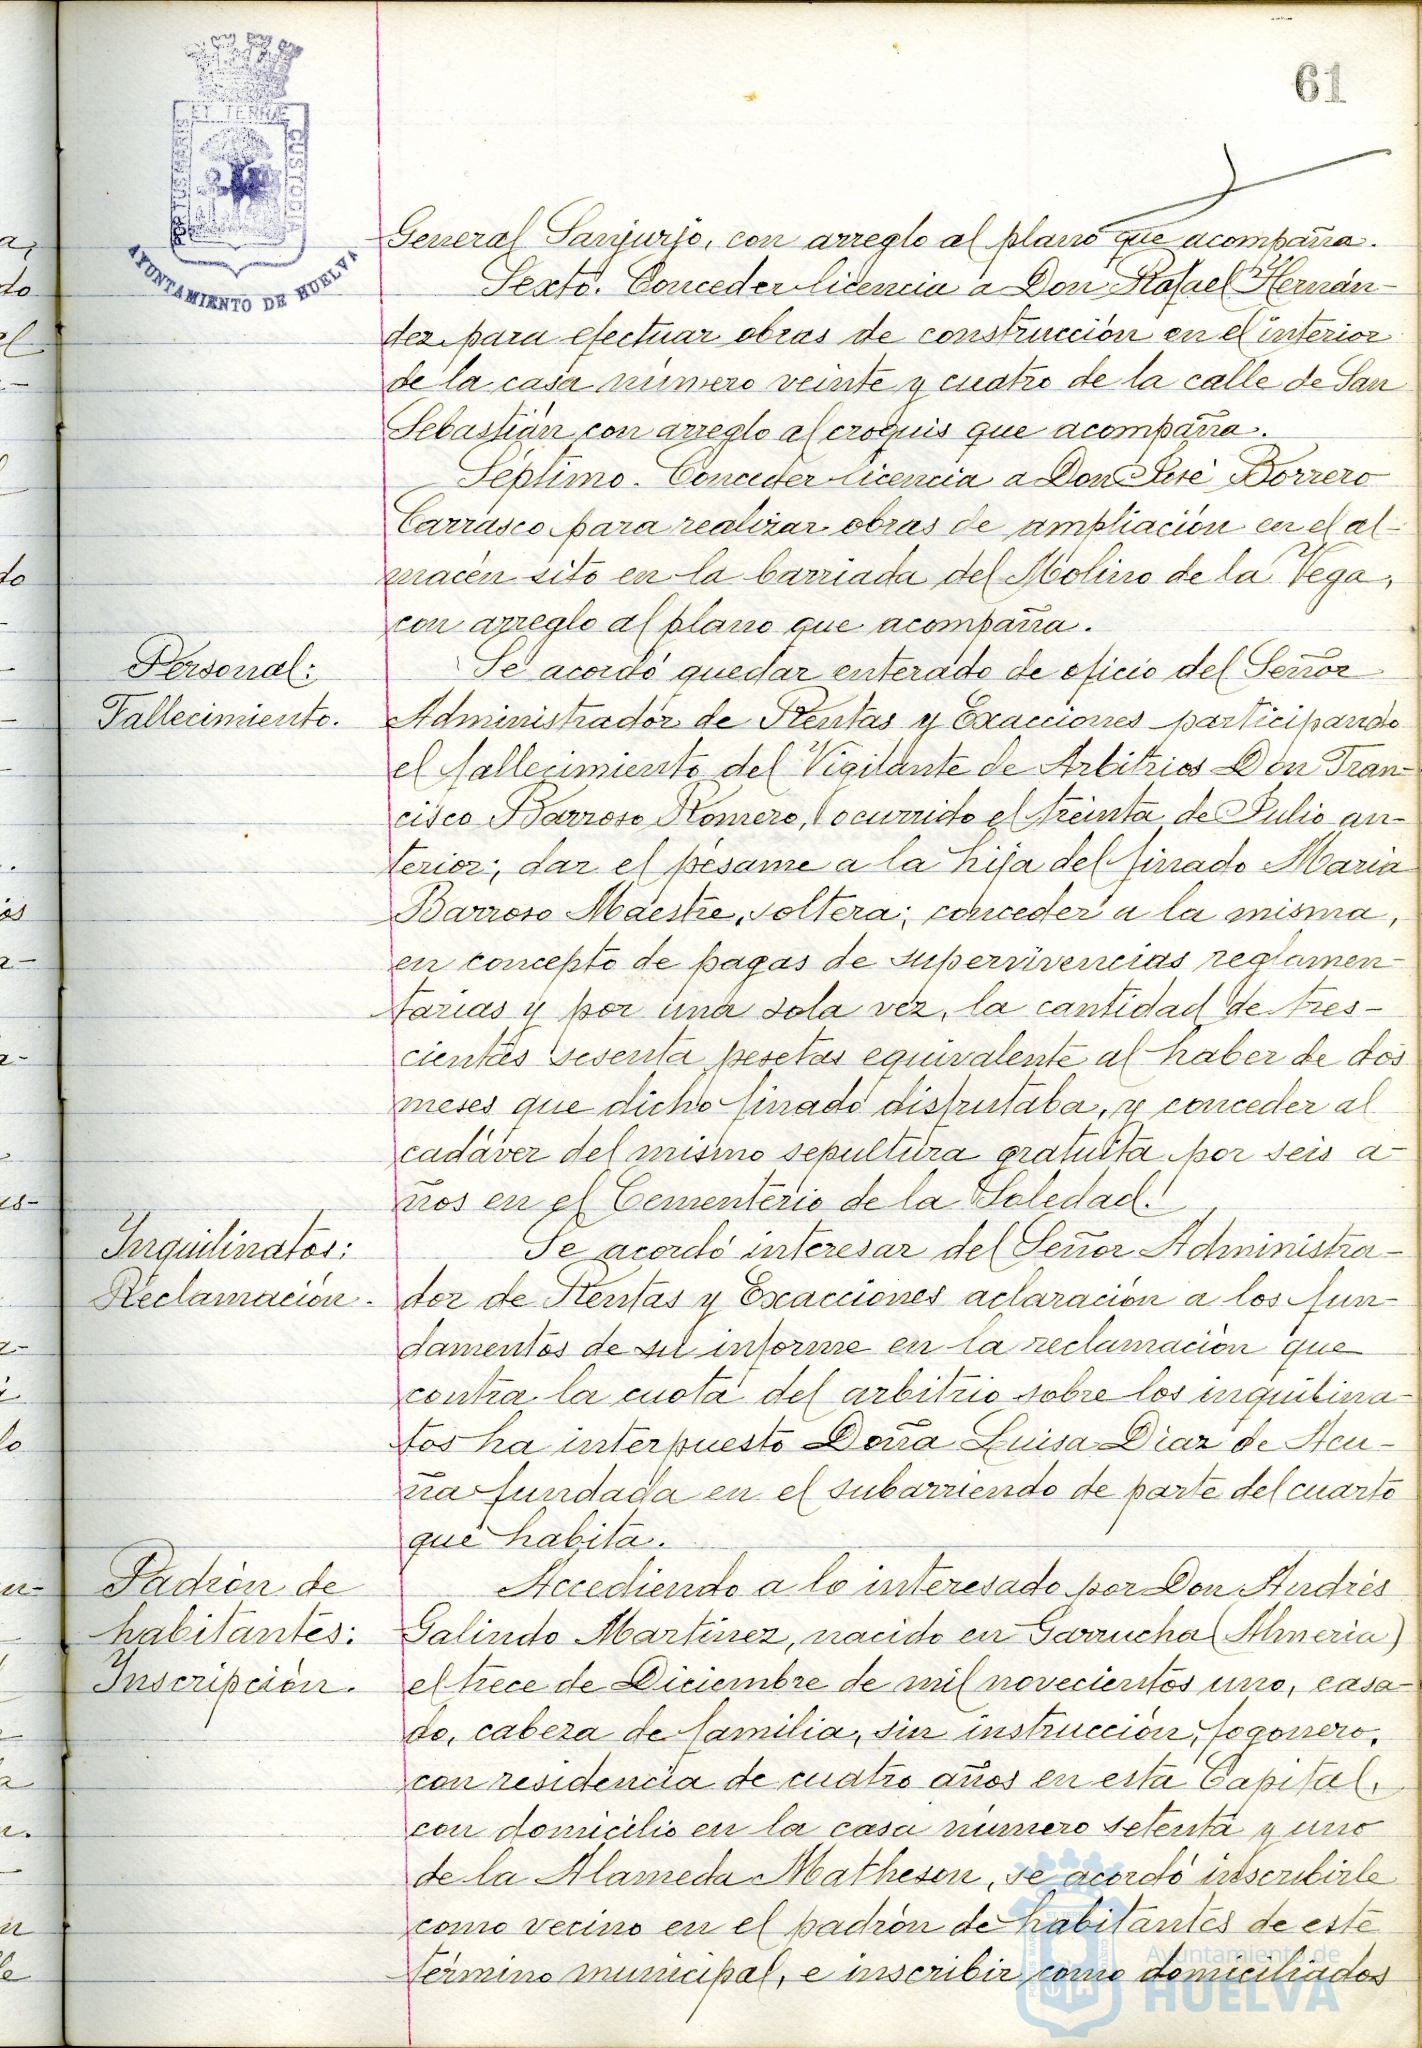 61
ET TERRÆ
PORTUS MARIS
CUSTODIA
AYUNTAMIENTO DE HUELVA
General Sanjurjo, con arreglo al plano que acompaña.
Sexto. Conceder licencia a Don Rafael Hernán-
dez para efectuar obras de construcción en el interior
de la casa número veinte y cuatro de la calle de San
Sebastián con arreglo al croquis que acompaña.
Séptimo. Conceder licencia a Don José Borrero
Carrasco para realizar obras de ampliación en el al-
macén sito en la barriada del Molino de la Vega,
con arreglo al plano que acompaña.
Personal:
Fallecimiento.
Se acordó quedar enterado de oficio del Señor
Administrador de Rentas y Exacciones participando
el fallecimiento del Vigilante de Arbitrios Don Fran-
cisco Barroso Romero, ocurrido el treinta de Julio an-
terior; dar el pésame a la hija del finado Maria
Barroso Maestre, soltera; conceder a la misma,
en concepto de pagas de supervivencias reglamen-
tarias y por una sola vez, la cantidad de tres-
cientas sesenta pesetas equivalente al haber de dos
meses que dicho finado disfrutaba, y conceder al
cadáver del mismo sepultura gratuita por seis a-
ños en el Cementerio de la Soledad.
Inquilinatos:
Reclamación.
Se acordó interesar del Señor Administra-
dor de Rentas y Exacciones aclaración a los fun-
damentos de su informe en la reclamación que
contra la cuota del arbitrio sobre los inquilina-
tos ha interpuesto Doña Luisa Diaz de Acu-
ña fundada en el subarriendo de parte del cuarto
que habita.
Padrón de
habitantes:
Inscripción.
Accediendo a lo interesado por Don Andrés
Galindo Martinez, nacido en Garrucha (Almeria)
el trece de Diciembre de mil novecientos uno, casa-
do, cabeza de familia, sin instrucción, fogonero,
con residencia de cuatro años en esta Capital,
con domicilio en la casa número setenta y uno
de la Alameda Matheson, se acordó inscribirle
como vecino en el padrón de habitantes de este
término municipal, e inscribir como domiciliados
Ayuntamiento de
HUELVA